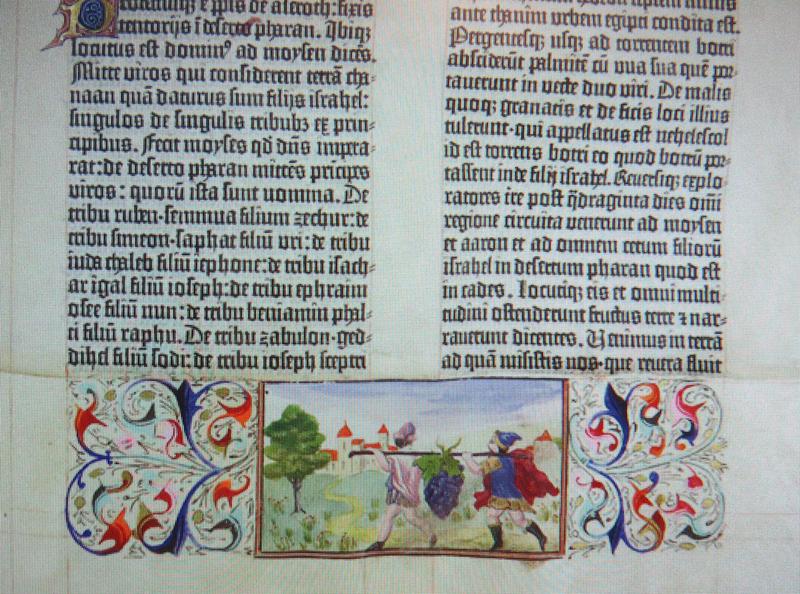 tentorijs ī deserto pharan. Ibiqz
locutus est dominꝰ ad moysen dicēs.
Mitte viros qui considerent terrā cha⸗
naan quā daturus sum filijs israhel:
singulos de singulis tribubꝫ ex prin⸗
cipibus. Fecit moyses qd dn̄s impera⸗
rat: de deserto pharan mittēs prīcipes
viros: quorū ista sunt nomina. De
tribu ruben-semmua filium zechur: de
tribu simeon-saphat filiū vri: de tribu
iuda chaleb filiū iephone: de tribu isach⸗
ar igal filiū ioseph: de tribu ephraim
osee filiū nun: de tribu beniamin phal⸗
ti filiū raphu. De tribu zabulon-ged⸗
dihel filiū sodi: de tribu ioseph sceptri
ante thanim urbem egipti condita est.
Pergentesqꝫ usqꝫ ad torrentem botri
absciderūt palmitē cū uua sua quē por⸗
tauerunt in vecte duo viri. De malis
quoqꝫ granatis et de ficis loci illius
tulerunt-qui appellatus est nehelescol
id est torrens botri eo quod botrū por⸗
tassent inde filij israhel. Reuersiqꝫ explo⸗
ratores tre post q̄draginta dies om̄i
regione circuita venerunt ad moysen
et aaron et ad omnem cetum filiorū
israhel in desertum pharan quod est
in cades. Locutiqꝫ eis et omni multi⸗
tudini ostenderunt fructus terre ⁊ nar⸗
rauerunt dicentes. Venimus in terrā
ad quā misistis nos-que reuera fluit